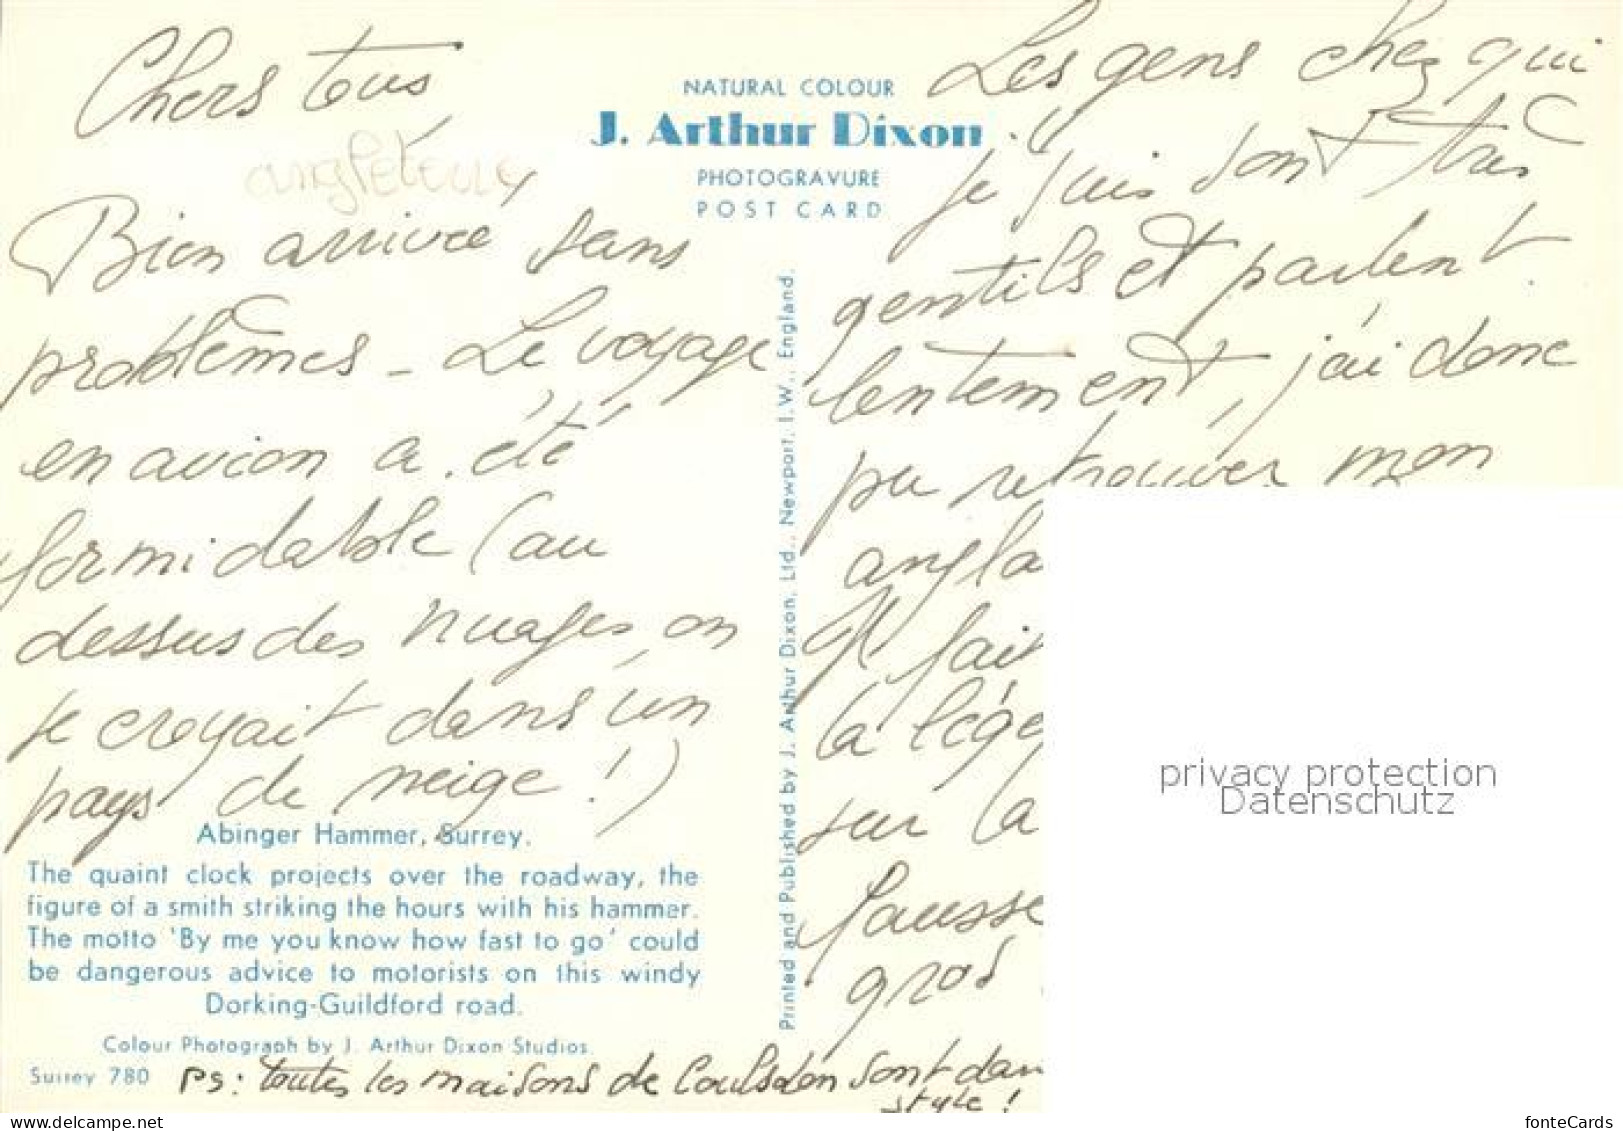 Chers tous
angleterre
Bien arrivée sans
problèmes - Le voyage
en avion a été
formidable (au
dessus des nuages, on
se croyait dans un
pays de neige !)
Abinger Hammer, Surrey.
The quaint clock projects over the roadway, the
figure of a smith striking the hours with his hammer.
The motto 'By me you know how fast to go' could
be dangerous advice to motorists on this windy
Dorking-Guildford road.
Colour Photograph by J. Arthur Dixon Studios.
Surrey 780
NATURAL COLOUR
J. Arthur Dixon
PHOTOGRAVURE
POST CARD
Printed and Published by J. Arthur Dixon, Ltd., Newport, I.W., England.
Les gens chez qui
je suis sont très
gentils et parlent
lentement, j'ai donc
pu retrouver mon
angla
Il fait
la lége
sur la
fausse
gros
PS: toutes les maisons de Coulsdon sont dan
style !
privacy protection
Datenschutz
www.delcampe.net
fonteCards